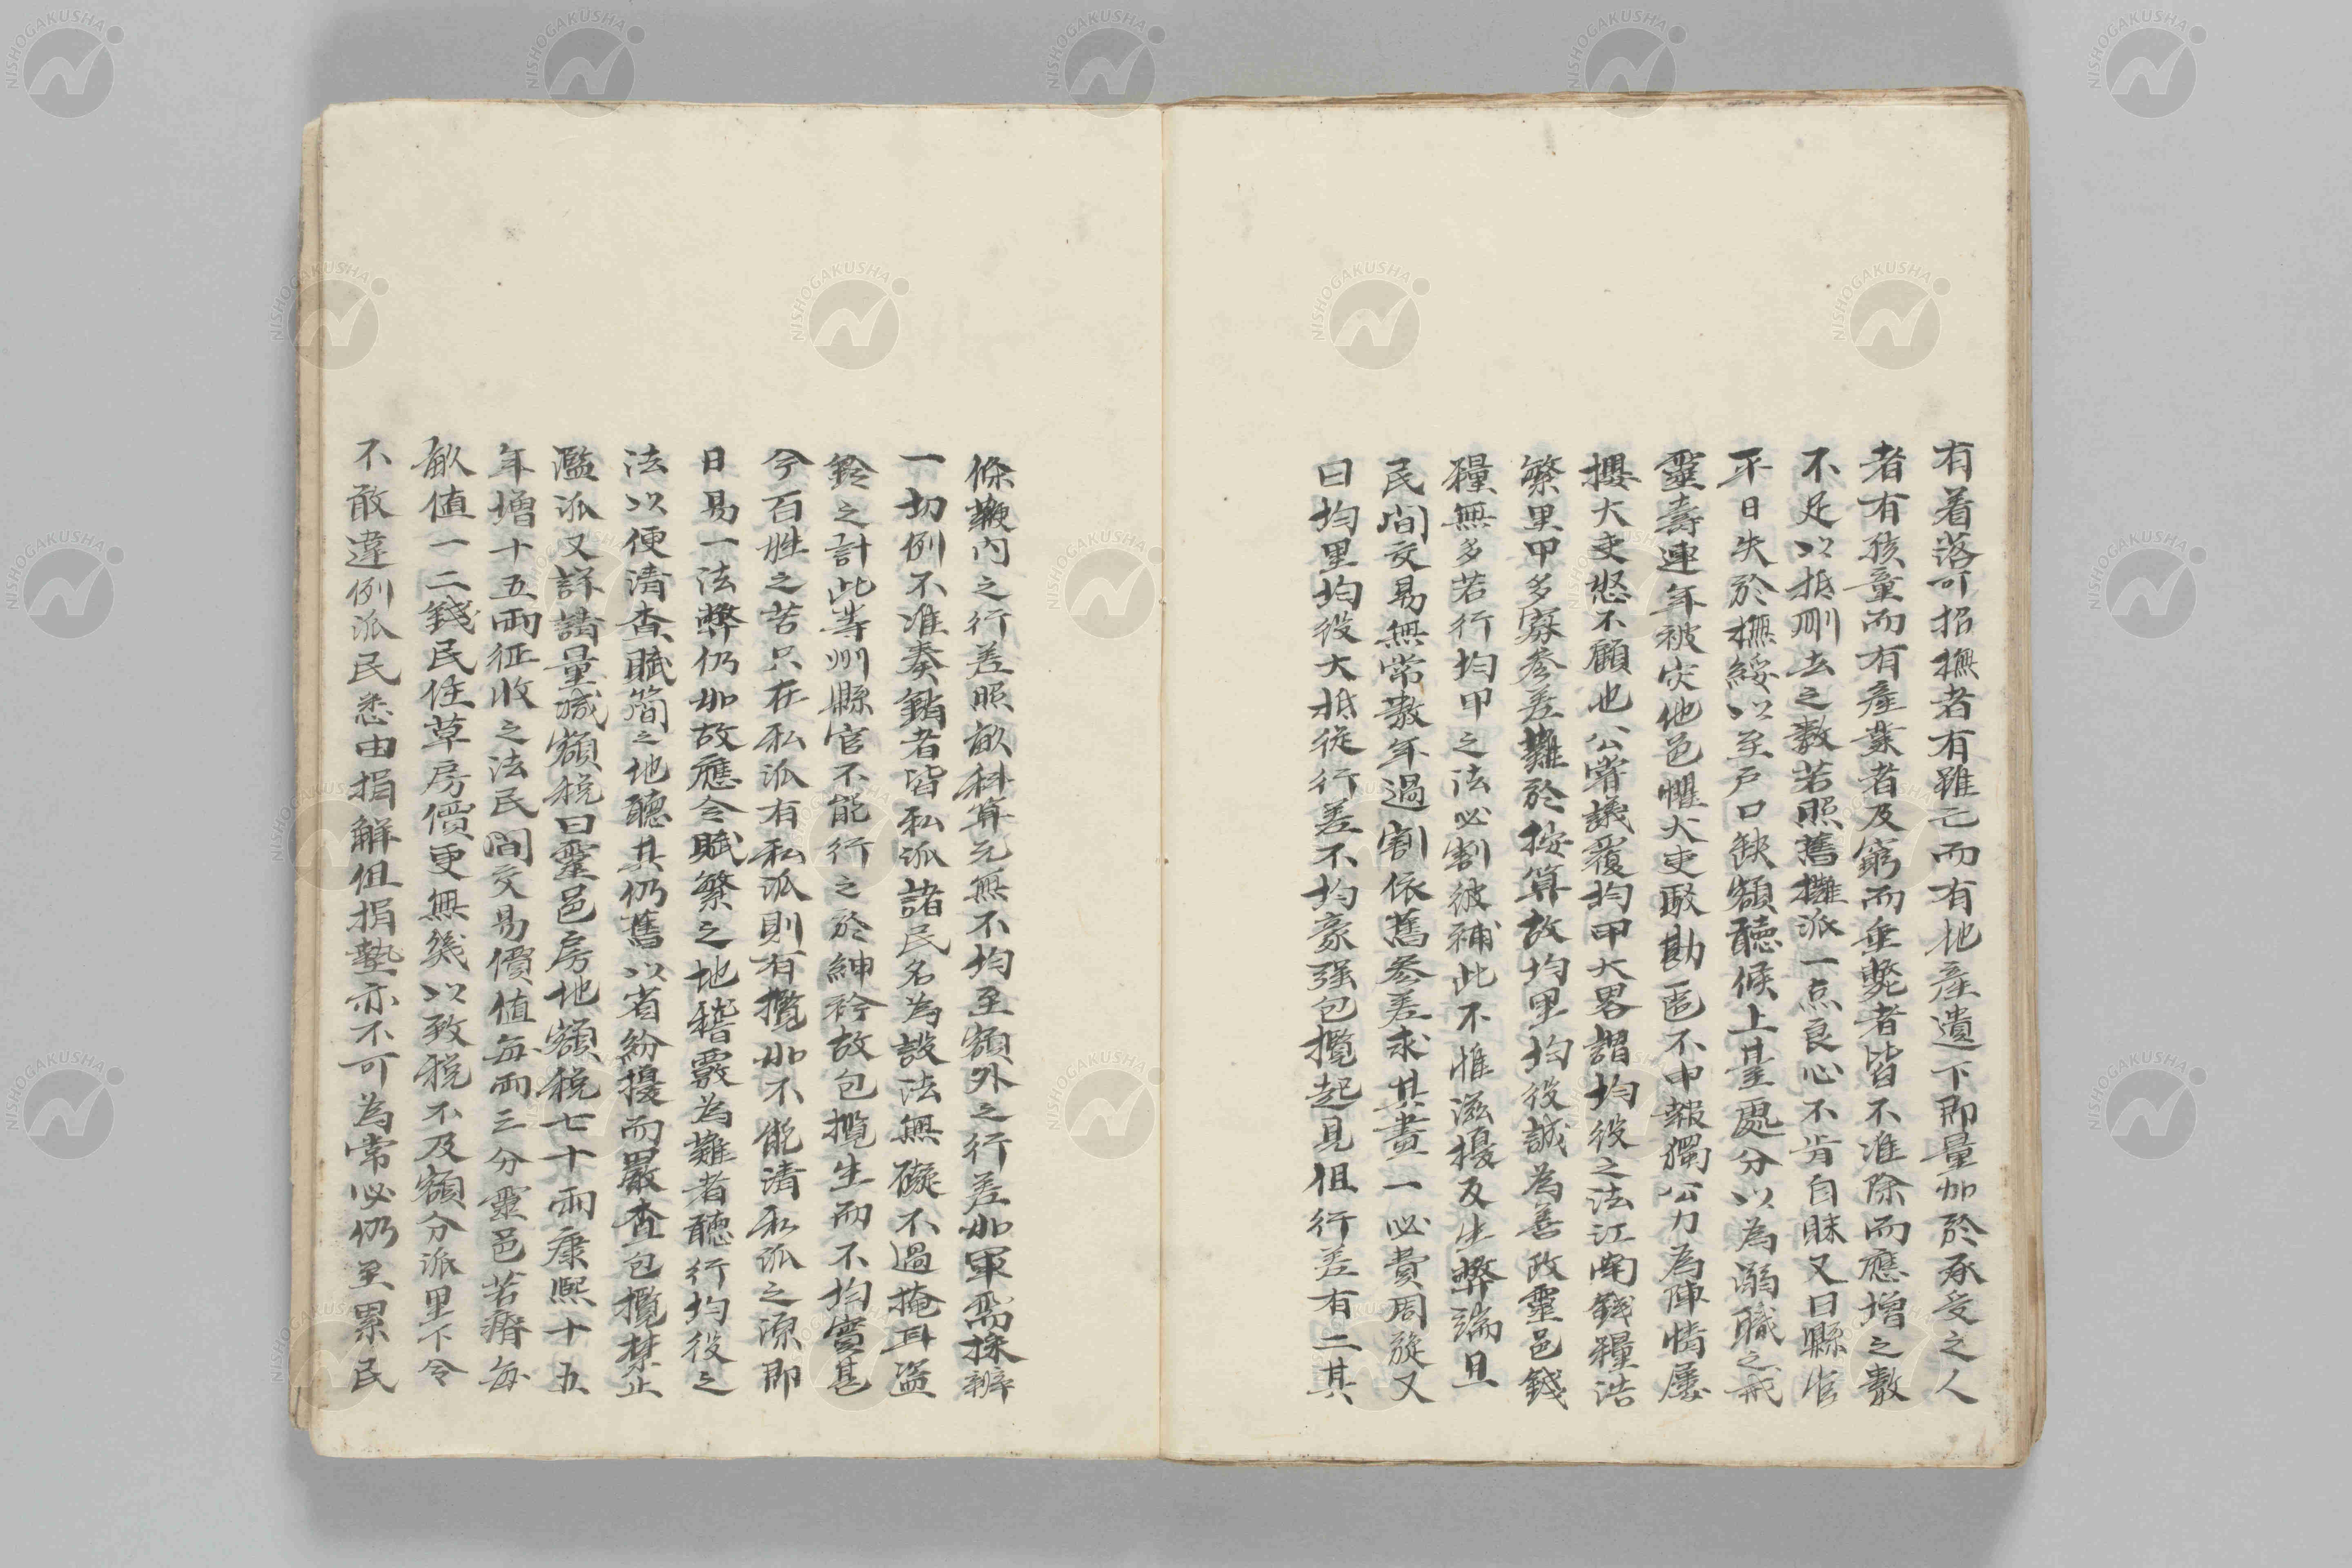 有着落可招撫者有雖亡而有地產遺下即量加於承受之人
者有孩童而有產業者及窮而垂斃者皆不准除而應增之數
不足以抵刪去之數若照舊攤派一点良心不肯自昧又曰縣官
平日失於撫綏以至戶口缺額聽候上臺處分以為溺職之戒
靈壽連年被灾他邑懼大吏駁勘匿不申報獨公力為陳情屢
攖大吏怒不顧也公嘗議覆均甲大畧謂均役之法江南錢糧浩
繁里甲多寡參差難於按算故均里均役誠為善政靈邑錢
糧無多若行均甲之法必割彼補此不惟滋擾反生弊端且
民間交易無常數年過割依舊參差求其畫一必費周旋又
曰均里均役大抵從行差不均豪强包攬起見但行差有二其
條鞭内之行差照畝科算元無不均至額外之行差如軍需採辦
一切例不准奏銷者皆私派諸民名為設法無礙不過掩耳盜
鈴之計此等州縣官不能行之於紳衿故包攬生而不均實甚
今百姓之苦只在私派有私派則有攬如不能清私派之源即
日易一法弊仍如故應令賦繁之地稽覈為難者聽行均役之
法以便清查賦簡之地聽其仍舊以省紛擾而嚴查包攬禁止
濫派又詳請量減額稅曰靈邑房地額稅七十兩康熙十五
年增十五兩征收之法民間交易價值每兩三分靈邑苦瘠每
畝值一二錢民住草房價更無幾以致稅不及額分派里下今
不敢違例派民悉由捐解但捐墊亦不可為常必仍至累民
NISHOGAKUSHA